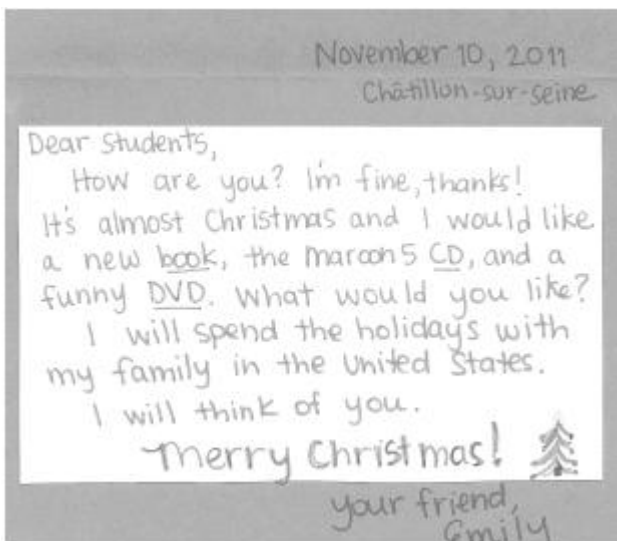 November 10, 2011
Châtillon-sur-seine
Dear Students,
How are you? I'm fine, thanks!
It's almost Christmas and I would like
a new book, the maroon 5 CD, and a
funny DVD. What would you like?
I will spend the holidays with
my family in the United States.
I will think of you.
Merry Christmas!
your friend,
Emily